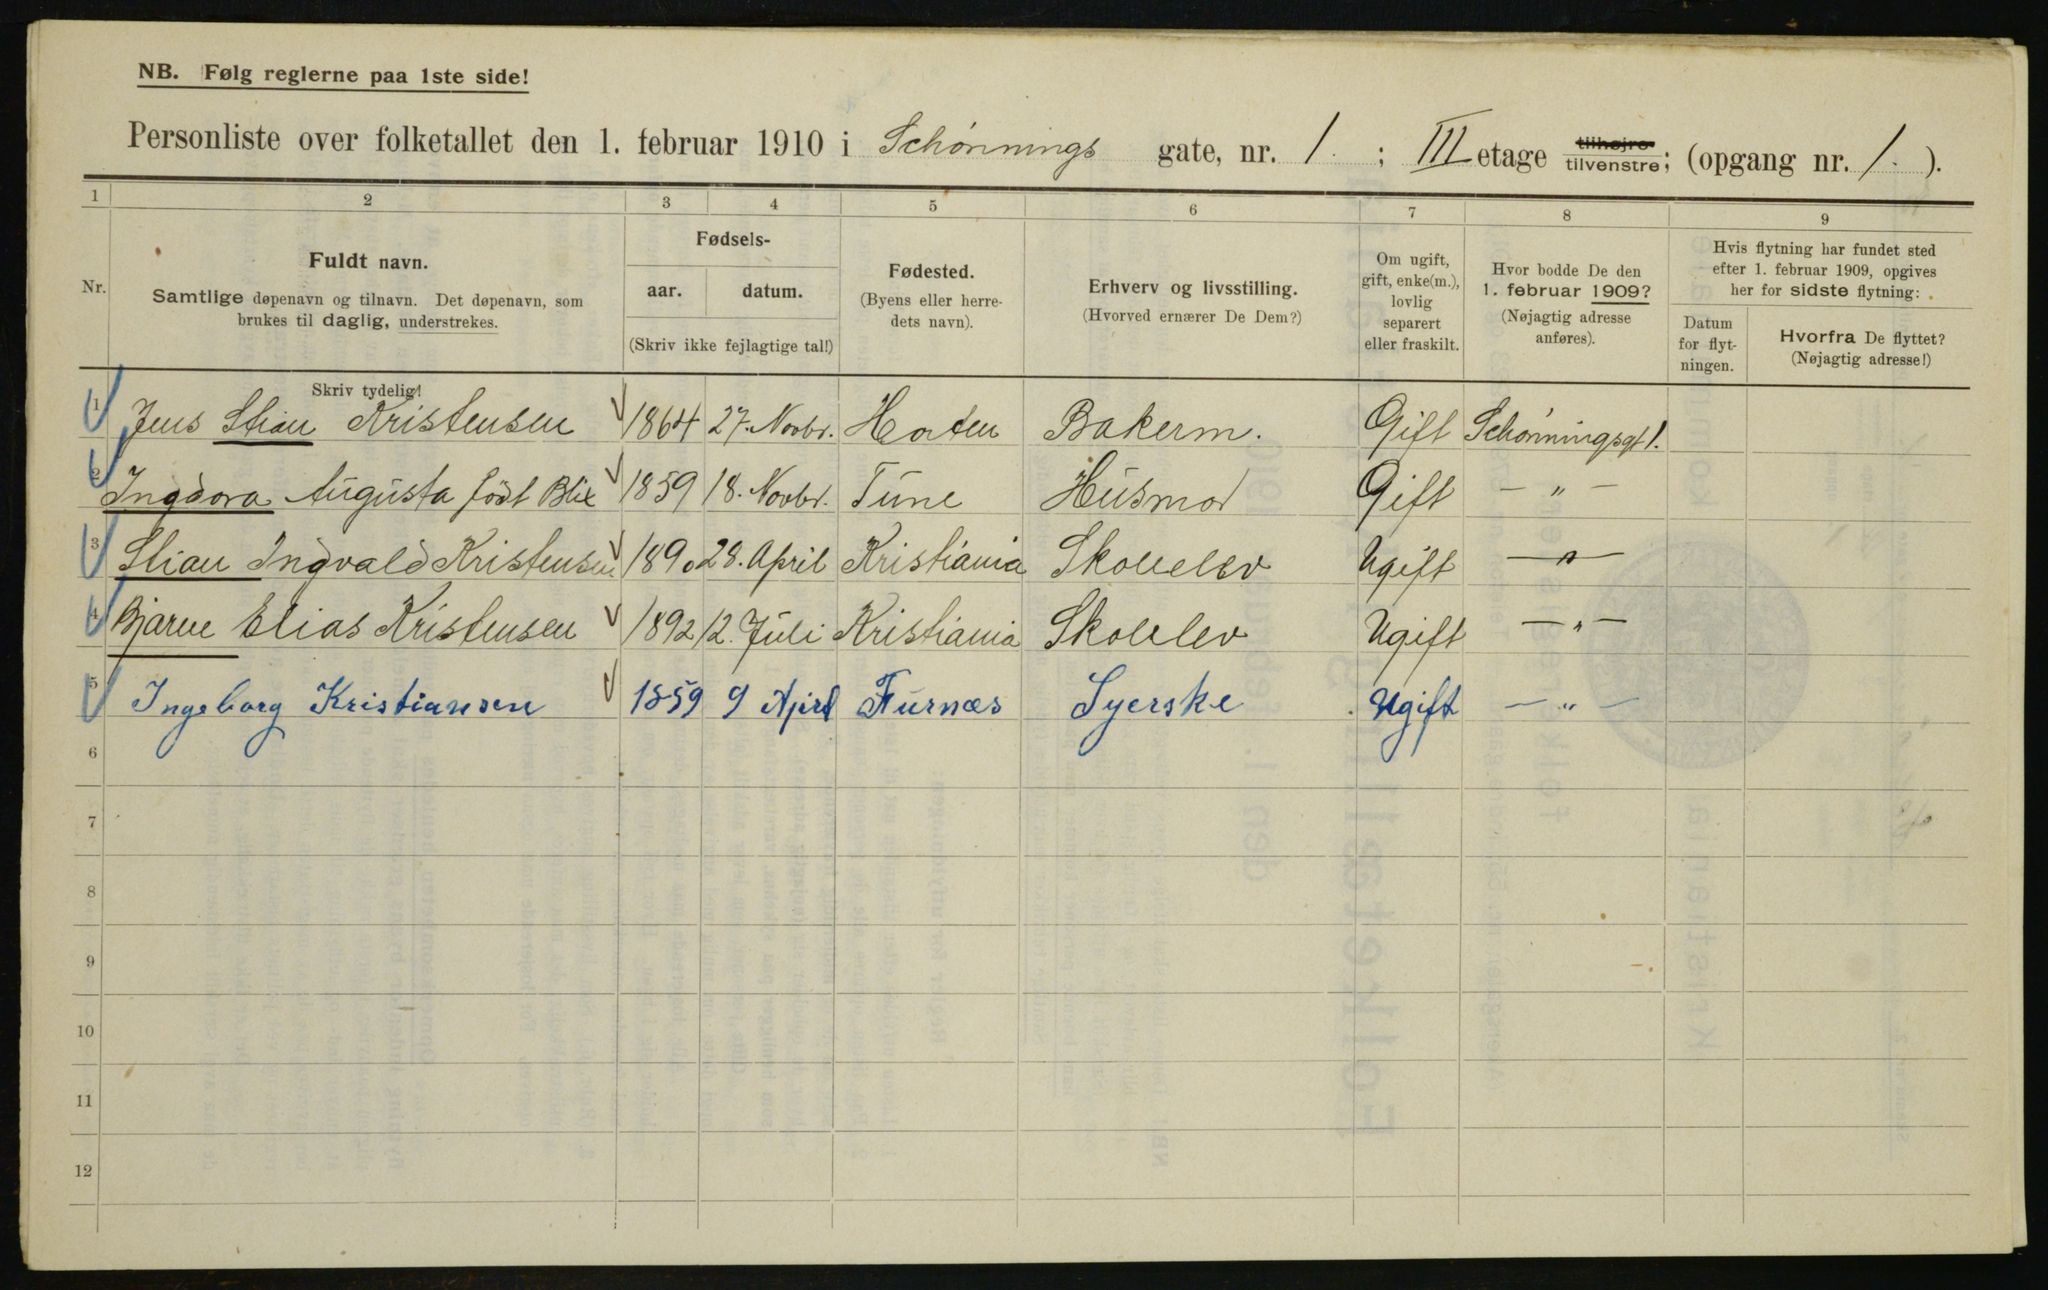 NB. Følg reglerne paa 1ste side!
Personliste over folketallet den 1. februar 1910 i Schønnings gate, nr. 1. ; III etage tilhøjre tilvenstre; (opgang nr. 1. ).
1 2 3 4 5 6 7 8 9
Nr.
Fuldt navn.
Samtlige døpenavn og tilnavn. Det døpenavn, som
brukes til daglig, understrekes.
Skriv tydelig!
Fødsels-
aar. datum.
(Skriv ikke fejlagtige tal!)
Fødested.
(Byens eller herre-
dets navn).
Erhverv og livsstilling.
(Hvorved ernærer De Dem?)
Om ugift,
gift, enke(m.),
lovlig
separert
eller fraskilt.
Hvor bodde De den
1. februar 1909?
(Nøjagtig adresse
anføres).
Hvis flytning har fundet sted
efter 1. februar 1909, opgives
her for sidste flytning:
Datum
for flyt-
ningen.
Hvorfra De flyttet?
(Nøjagtig adresse!)
1 Jens Stian Kristensen 1864 27. Novbr. Horten Bakerm. Gift Schønningsgt 1.
2 Ingdora Augusta födt Blix 1859 18. Novbr. Tune Husmor Gift — " —
3 Stian Ingvald Kristensen 1890 28. April Kristiania Skoleelev Ugift — " —
4 Bjarne Elias Kristensen 1892 12. Juli Kristiania Skoleelev Ugift — " —
5 Ingeborg Kristiansen 1859 9 April Furnæs Syerske Ugift — " —
6
7
8
9
10
11
12